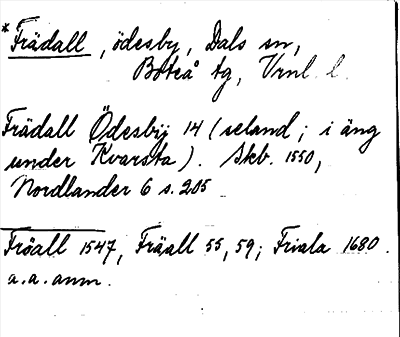 *Frädall, ödesby, Dals sn,
Boteå tg, Vrnl. l.
Frädall Ödesbÿ 14 (seland; i äng
under Kvarsta). Skb. 1550,
Nordlander 6 s. 205
Fröall 1547, Fräall 55, 59; Friala 1680.
a.a. anm.